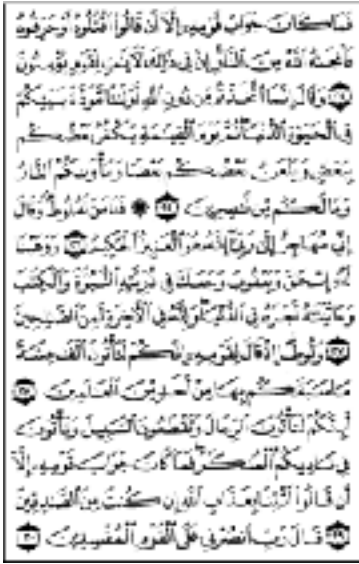 فَمَا كَانَ جَوَابَ قَوْمِهِ إِلَّا أَن قَالُوا اقْتُلُوهُ أَوْ حَرِّقُوهُ
فَأَنجَاهُ اللَّهُ مِنَ النَّارِ إِنَّ فِي ذَٰلِكَ لَآيَاتٍ لِّقَوْمٍ يُؤْمِنُونَ
﴿٢٤﴾ وَقَالَ إِنَّمَا اتَّخَذْتُم مِّن دُونِ اللَّهِ أَوْثَانًا مَّوَدَّةَ بَيْنِكُمْ
فِي الْحَيَاةِ الدُّنْيَا ثُمَّ يَوْمَ الْقِيَامَةِ يَكْفُرُ بَعْضُكُم
بِبَعْضٍ وَيَلْعَنُ بَعْضُكُم بَعْضًا وَمَأْوَاكُمُ النَّارُ
وَمَا لَكُم مِّن نَّاصِرِينَ ﴿٢٥﴾ ۞ فَآمَنَ لَهُ لُوطٌ وَقَالَ
إِنِّي مُهَاجِرٌ إِلَىٰ رَبِّي إِنَّهُ هُوَ الْعَزِيزُ الْحَكِيمُ ﴿٢٦﴾ وَوَهَبْنَا
لَهُ إِسْحَاقَ وَيَعْقُوبَ وَجَعَلْنَا فِي ذُرِّيَّتِهِ النُّبُوَّةَ وَالْكِتَابَ
وَآتَيْنَاهُ أَجْرَهُ فِي الدُّنْيَا وَإِنَّهُ فِي الْآخِرَةِ لَمِنَ الصَّالِحِينَ
﴿٢٧﴾ وَلُوطًا إِذْ قَالَ لِقَوْمِهِ إِنَّكُمْ لَتَأْتُونَ الْفَاحِشَةَ
مَا سَبَقَكُم بِهَا مِنْ أَحَدٍ مِّنَ الْعَالَمِينَ ﴿٢٨﴾
أَئِنَّكُمْ لَتَأْتُونَ الرِّجَالَ وَتَقْطَعُونَ السَّبِيلَ وَتَأْتُونَ
فِي نَادِيكُمُ الْمُنكَرَ فَمَا كَانَ جَوَابَ قَوْمِهِ إِلَّا
أَن قَالُوا ائْتِنَا بِعَذَابِ اللَّهِ إِن كُنتَ مِنَ الصَّادِقِينَ
﴿٢٩﴾ قَالَ رَبِّ انصُرْنِي عَلَى الْقَوْمِ الْمُفْسِدِينَ ﴿٣٠﴾